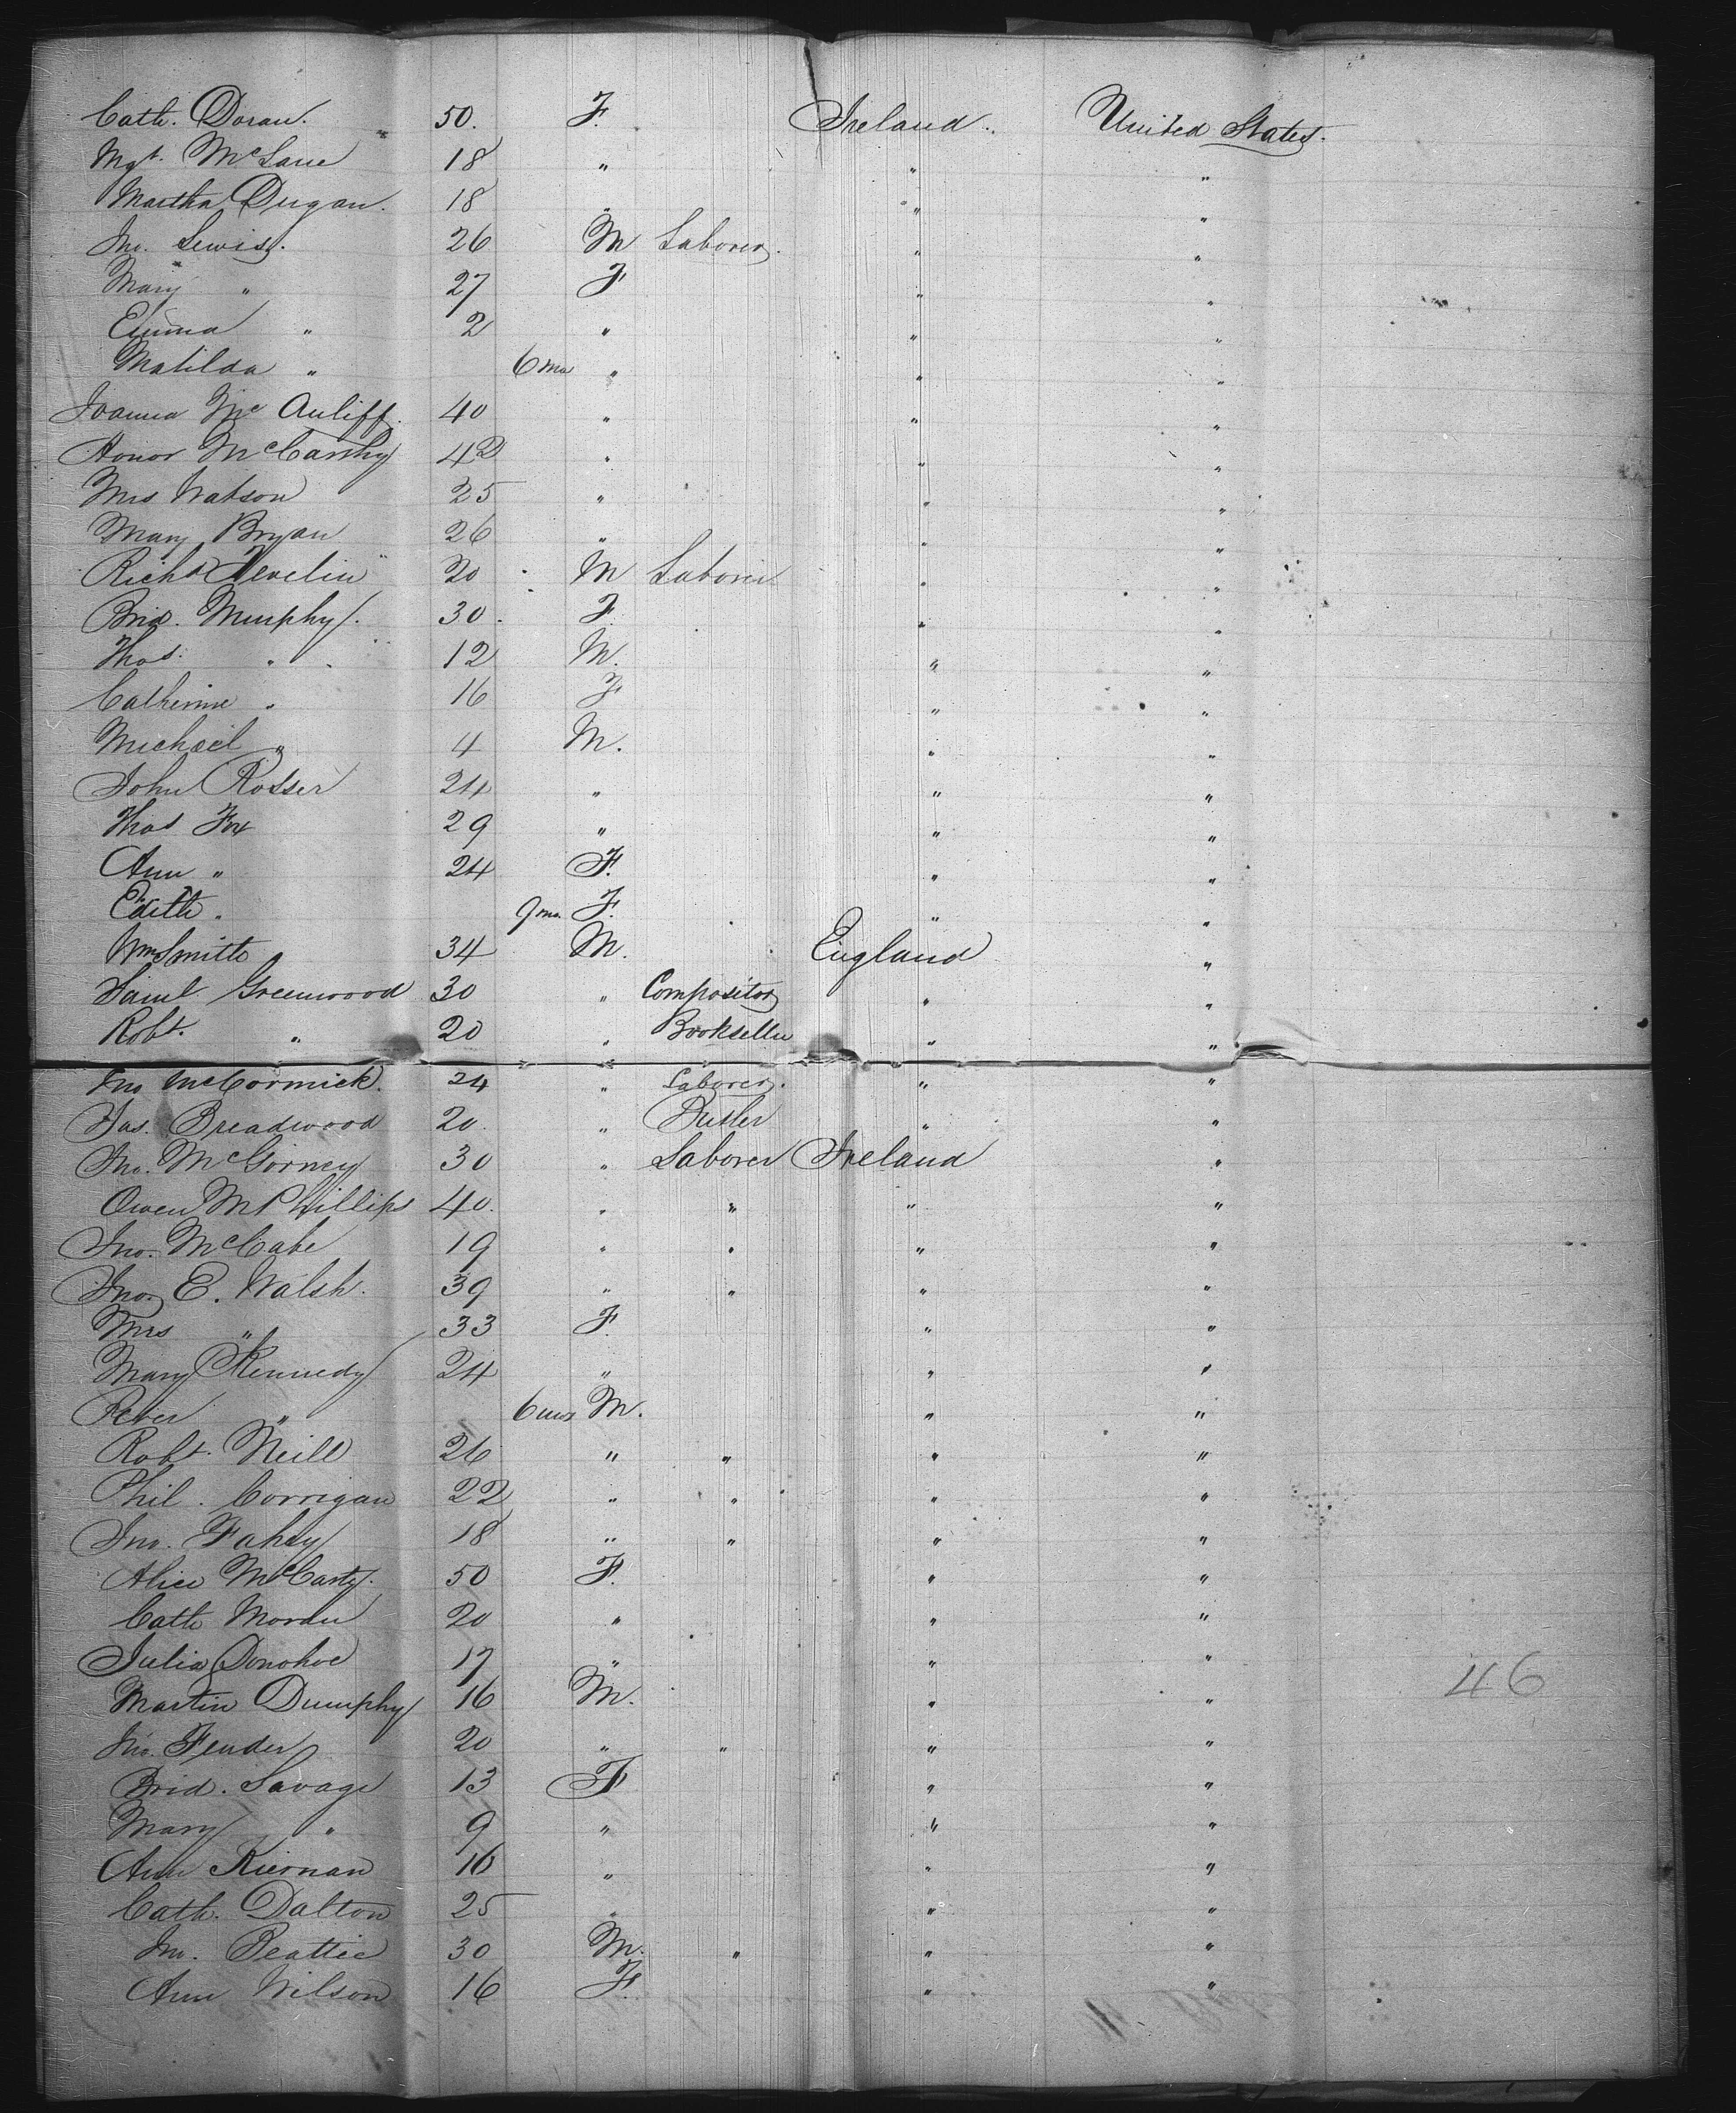 Cath. Doran. 50. F. Ireland. United States.
Mgt. McLane 18 " " "
Martha Dugan. 18 " " "
Jno. Lewis. 26 M Laborer. " "
Mary " 27 F " "
Emma " 2 " " "
Matilda " 6 mo " " "
Joanna Mc Auliff. 40 " " "
Honor McCarthy 42 " " "
Mrs Watson 25 " " "
Mary Bryan 26 " " "
Richd 20 M Laborer " "
Brid. Murphy. 30. F. " "
Thos. " 12 M. " "
Catherine " 16 F " "
Michael " 4 M. " "
John Rosser 24 " " "
Thos Fox 29 " " "
Ann " 24 F. " "
Edith " 9 mo. F. " "
Wm Smith 34 M. England "
Saml. Greenwood 30 " Compositor " "
Robt. " 20 " Bookseller " "
Jno McCormick. 24 " Laborer. " "
Jas. Breadwood 20. " Butler " "
Jno. McGorney 30 " Laborer Ireland "
Owen McPhillips 40. " " " "
Jno. McCabe 19 " " " "
Jno. E. Walsh. 39 " " " "
Mrs " 33 F. " "
Mary Kennedy 24 " " "
Peter " 6 mos M. " "
Robt. Neill 26 " " " "
Phil. Corrigan 22 " " " "
Jno. Fahey 18 " " " "
Alice McCarty. 50 F. " "
Cath Moran 20 " " "
Julia Donohoe 17 " " "
Martin Dumphy 16 M. " "
Jno. Fender 20 " " " "
Brid. Savage 13 F " "
Mary " 9 " " "
Ann Kiernan 16 " " "
Cath. Dalton 25 " " "
Jno. Beattie 30 M. " " "
Ann Wilson 16 F. " "
46